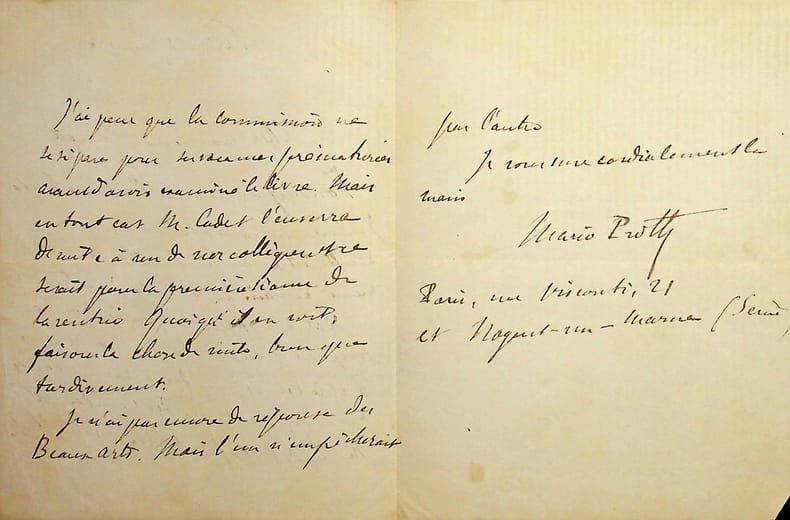 J'ai peur que la commission ne
se sépare pour ses vacances prématurées
avant d'avoir examiné le livre. Mais
en tout cas M. Cadet l'enverra
de suite à un de nos collègues et ce
serait pour la première séance de
la rentrée. Quoiqu'il en soit,
faisons la chose de suite, bien que
tardivement.
Je n'ai pas encore de réponse des
Beaux arts. Mais l'un n'empêcherait
pas l'autre
Je vous serre cordialement la
main
Mario Proth
Paris, rue Visconti, 21
et Nogent-sur-Marne (Seine)